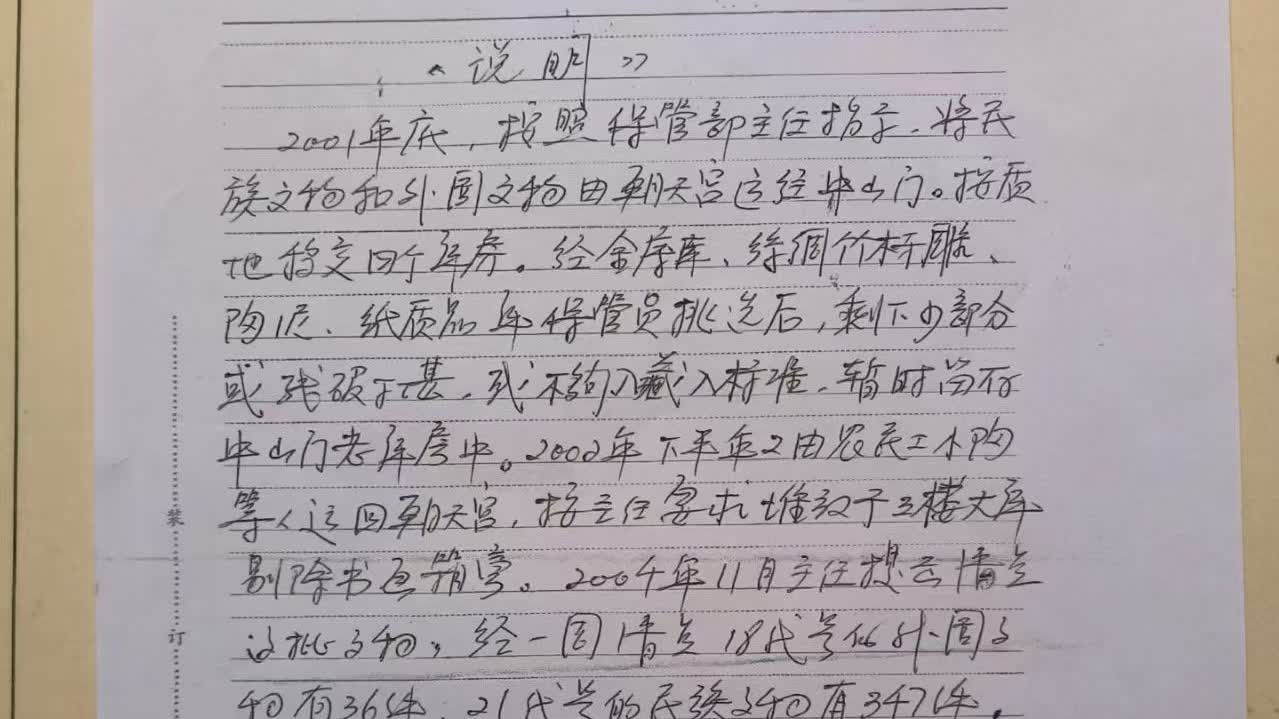 《说明》
2001年底，按照保管部主任指示，将民
族文物和外国文物由朝天宫运经中山门。按质
地移交四个库房。经金库库、丝绸竹木牙雕、
陶瓷、纸质品库保管员挑选后，剩下少部分
或残破不甚，或不够入藏入标准，暂时留存
中山门老库房中。2002年下半年又由农民工小陶
等人运回朝天宫，按主任要求堆放于三楼大库
剔除书画箱旁。2004年11月主任提出清点
这批文物，经一周清点18代号的外国文
物有36件，21代号的民族文物有347件，
装
订